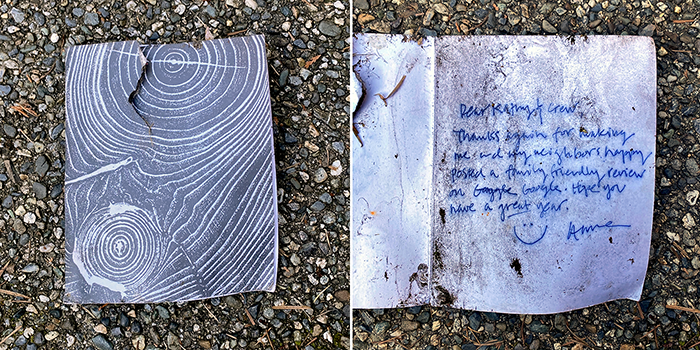 Dear Kathy & Crew
Thanks again for making
me and my neighbors happy
Posted a family friendly review
on Goggle Google. Hope you
have a great year.
Anne